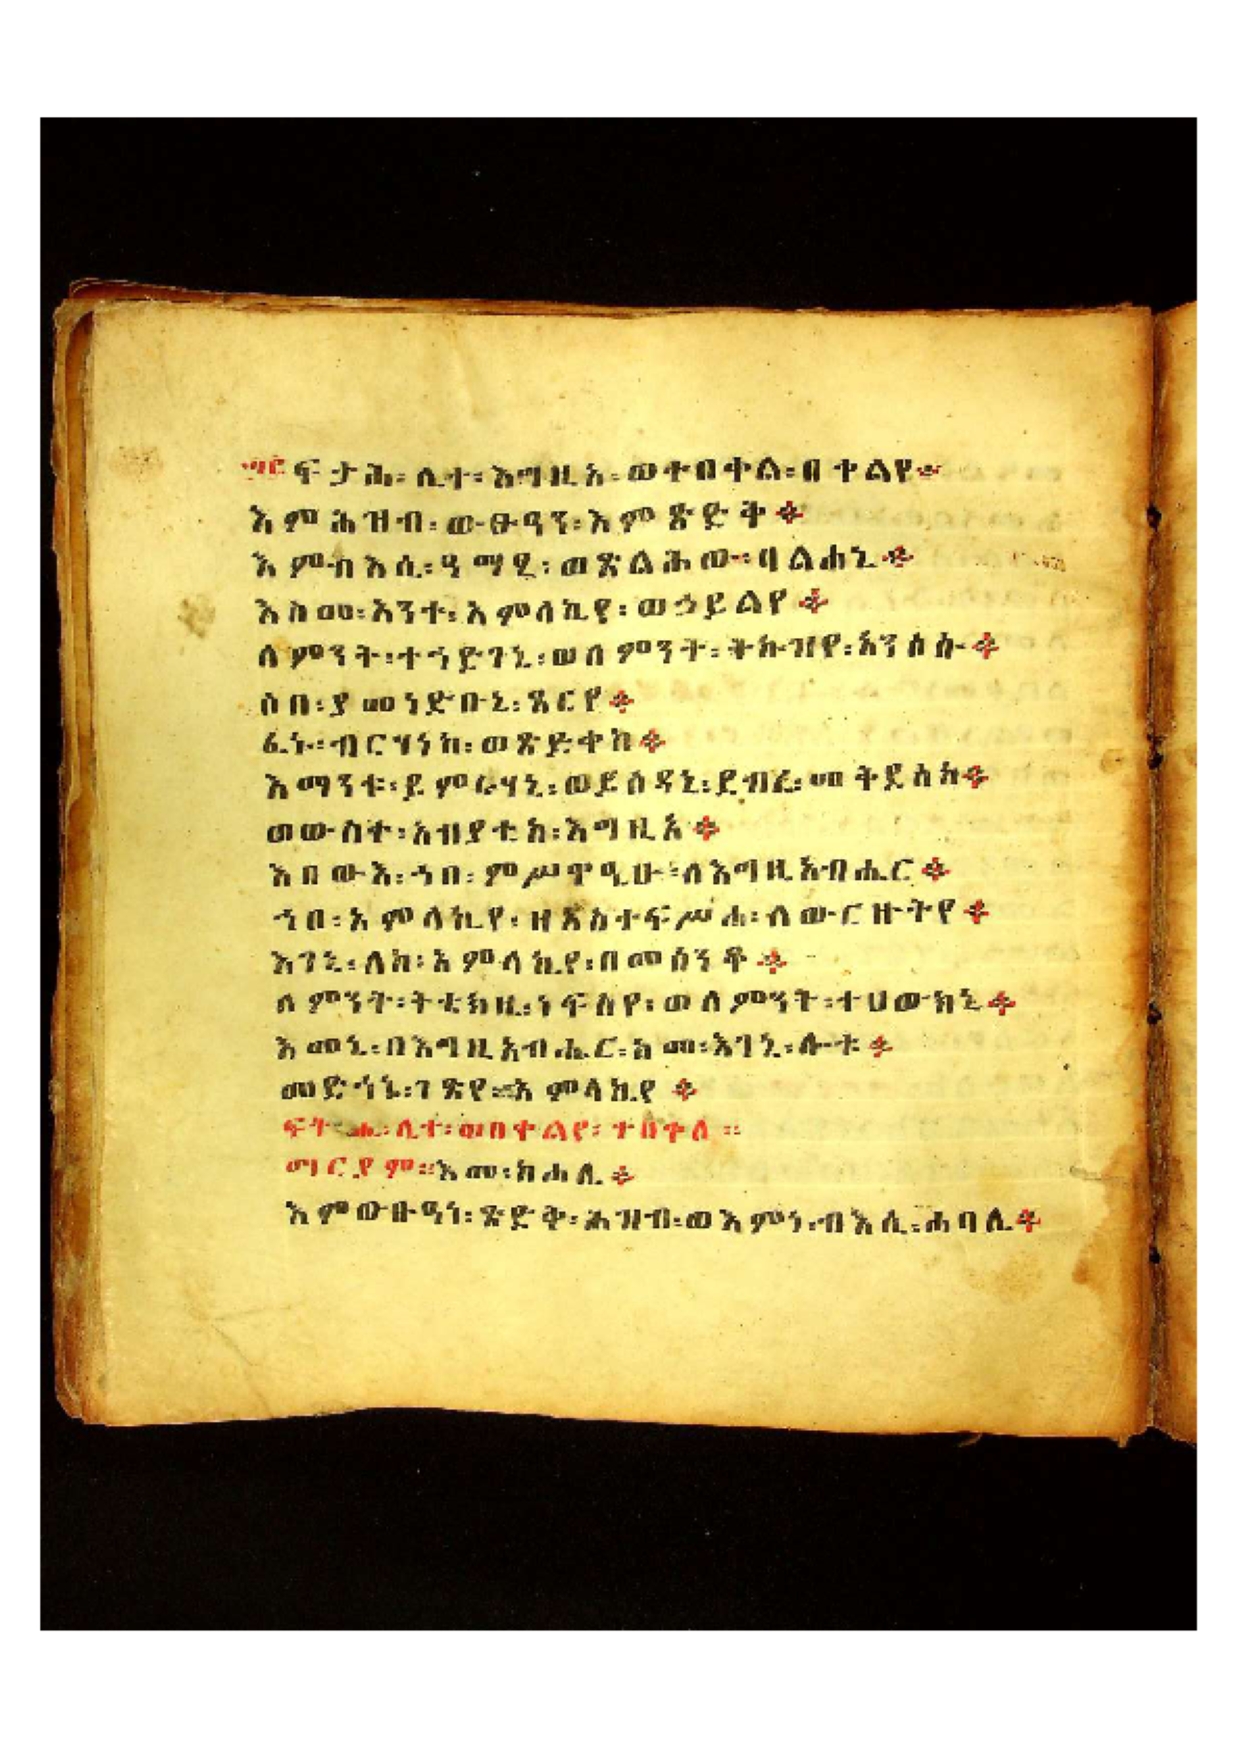 ፍታሕ፡ ሊተ፡ እግዚአ፡ ወተበቀል፡ በቀልየ።
እምሕዝብ፡ ውፁዓን፡ እምጽድቅ።
እምብእሲ፡ ዓማፂ፡ ወጽልሕው፡ ባልሐኒ።
እስመ፡ አንተ፡ አምላኪየ፡ ወኃይልየ።
ለምንት፡ ተኀድገኒ፡ ወለምንት፡ ትኩዝየ፡ አንሶሱ።
ሶበ፡ ያመነድቡኒ፡ ጸርየ።
ፈኑ፡ ብርሃነከ፡ ወጽድቀከ።
እማንቱ፡ ይምራሃኒ፡ ወይስዳኒ፡ ደብረ፡ መቅደስከ።
ወውስተ፡ አብያቲከ፡ እግዚአ።
እበውእ፡ ኀበ፡ ምሥዋዒሁ፡ ለእግዚአብሔር።
ኀበ፡ አምላኪየ፡ ዘአስተፍሥሐ፡ ለውርዙትየ።
እገኒ፡ ለከ፡ አምላኪየ፡ በመሰንቆ።
ለምንት፡ ትቴክዚ፡ ነፍስየ፡ ወለምንት፡ ተሀውክኒ።
እመኒ፡ በእግዚአብሔር፡ ከመ፡ እገኒ፡ ሎቱ።
መድኀኔ፡ ገጽየ፡ አምላኪየ።
ፍትሐ፡ ሊተ፡ ወበቀልየ፡ ተበቀለ።
ማርያም። እመ፡ ክሐሊ።
እምውፁዓነ፡ ጽድቅ፡ ሕዝብ፡ ወእምነ፡ ብእሲ፡ ሐባሊ።